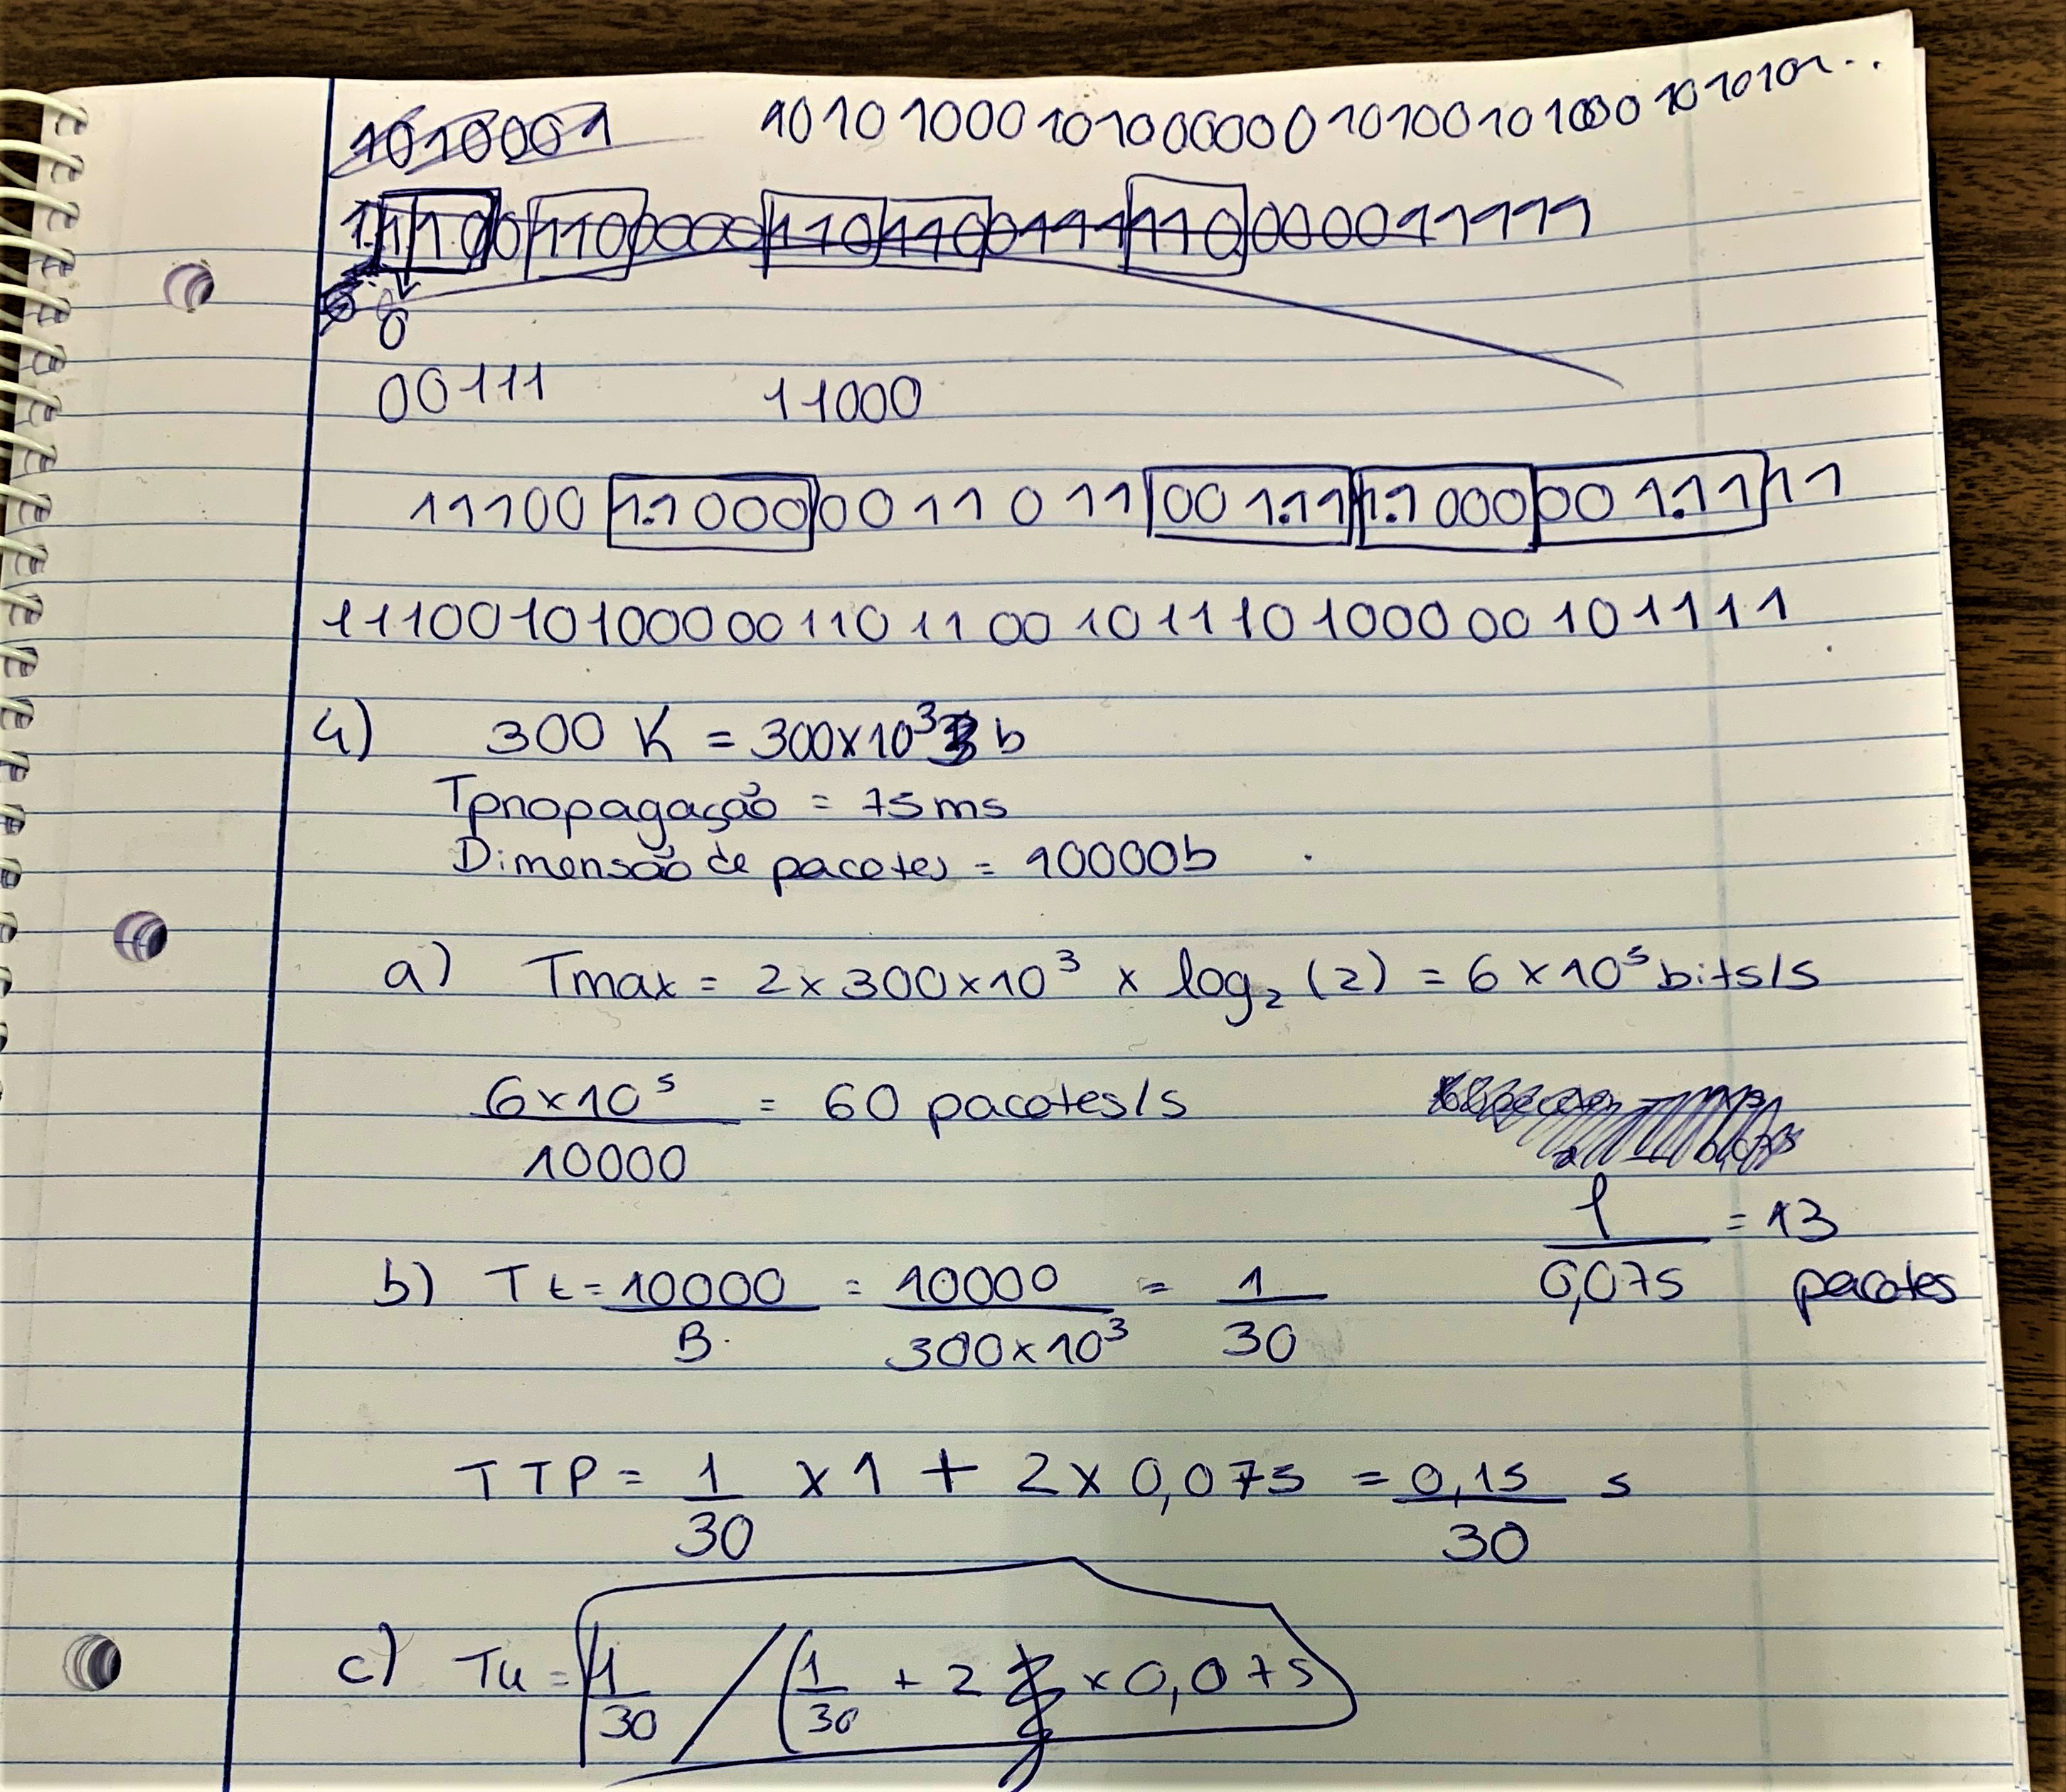 1010001 10101000101000000101001010001010101...
11100110000011011001111100000011111
0
00111 11000
11100110000011011001111100000111 11
111001010000011011001011101000001011111
4) 300 K = 300x10³ b
Tpropagação = 75ms
Dimensão de pacotes = 10000b
a) Tmax = 2 x 300x10³ x log₂ (2) = 6 x 10⁵ bits/s
6x10⁵ / 10000 = 60 pacotes/s
1 / 0,075 = 13 pacotes
b) Tt = 10000 / B = 10000 / 300x10³ = 1 / 30
TTP = 1 / 30 x 1 + 2 x 0,075 = 0,15 / 30 s
c) Tu = 1 / 30 / ( 1 / 30 + 2 x 0,075